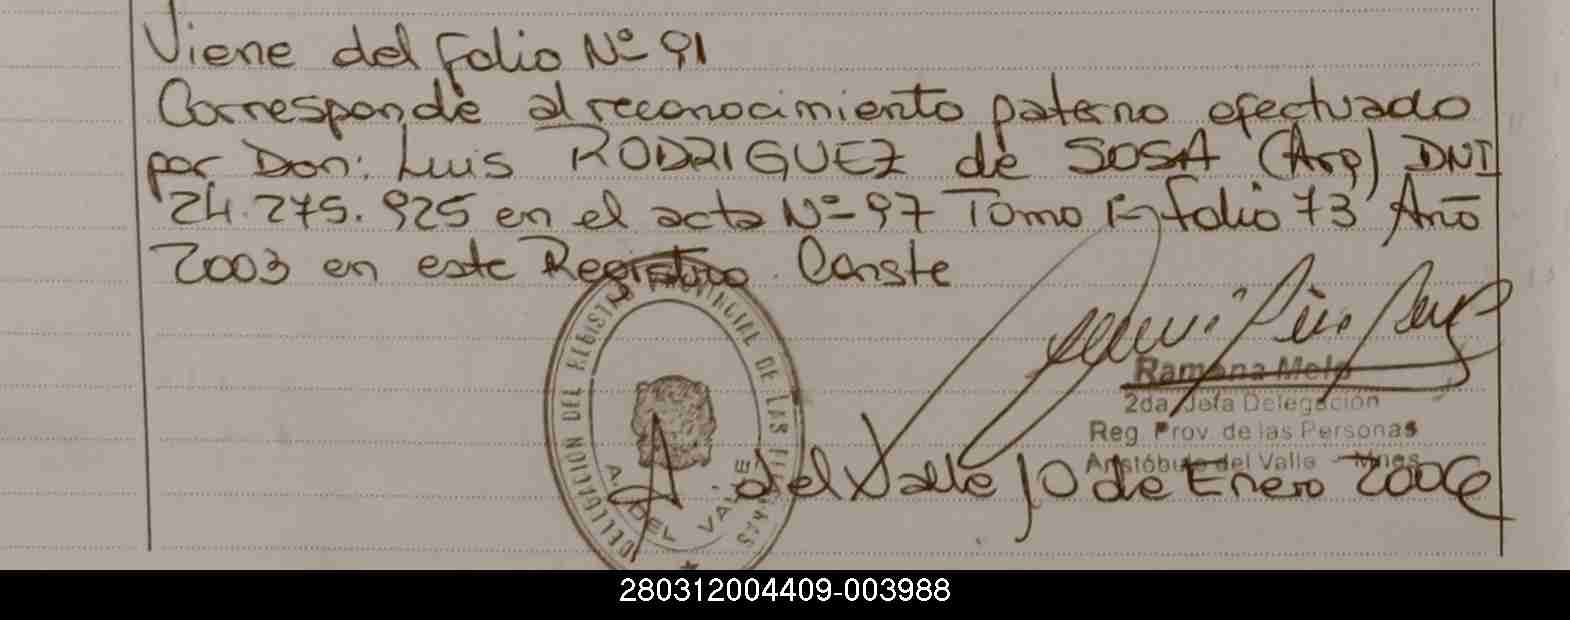 Viene del folio Nº 91
Corresponde al reconocimiento paterno efectuado
por Don: Luis RODRIGUEZ de SOSA (Arg) DNI
24.275.925 en el acta Nº 97 Tomo folio 73 Año
2003 en este Registro. Conste
DELEGACION DEL REGISTRO PROVINCIAL DE LAS PERSONAS
A. DEL VALLE
Ramona Melo
2da. Jefa Delegación
Reg. Prov. de las Personas
Aristóbulo del Valle - Mnes.
A. del Valle 10 de Enero 2006
280312004409-003988